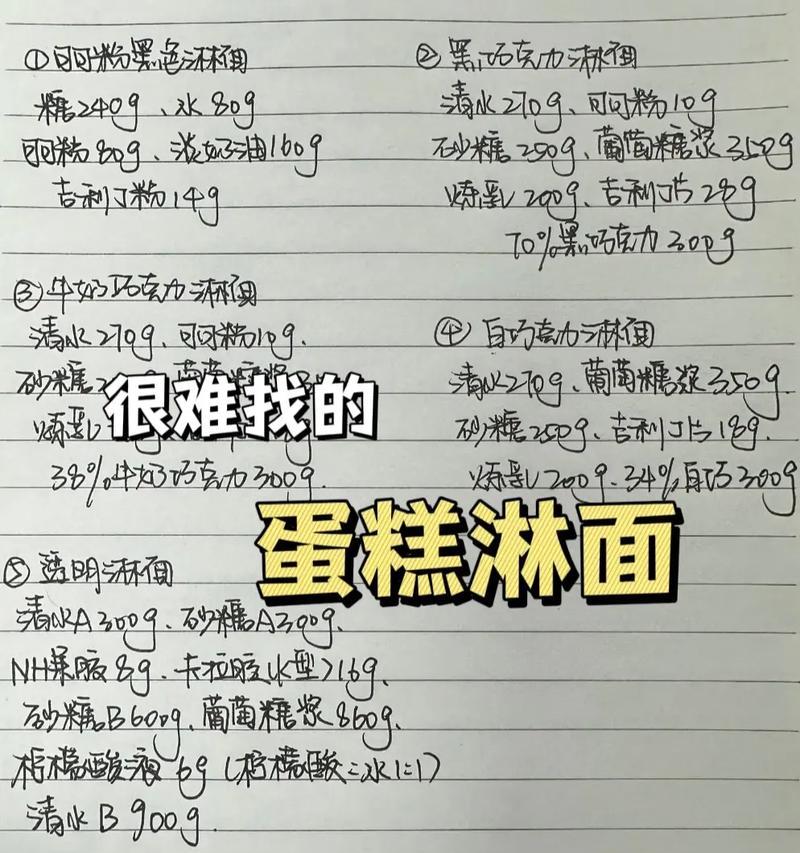 ①可可粉黑色淋面
糖240g、水80g
可可粉80g、淡奶油160g
吉利丁粉14g
②黑巧克力淋面
清水270g、可可粉10g
砂糖250g、葡萄糖浆350g
炼乳200g、吉利丁片28g
70%黑巧克力300g
③牛奶巧克力淋面
清水270g、可可粉10g.
砂糖2
炼乳
38%牛奶巧克力300g.
④白巧克力淋面
清水270g、葡萄糖浆350g
砂糖250g、吉利丁片18g.
炼乳200g、34%白巧300g
很难找的
蛋糕淋面
⑤透明淋面
清水A300g、砂糖A300g、
NH果胶8g、卡拉胶(K型)16g、
砂糖B600g、葡萄糖浆860g、
柠檬酸液6g(柠檬酸:水1:1)
清水B900g.